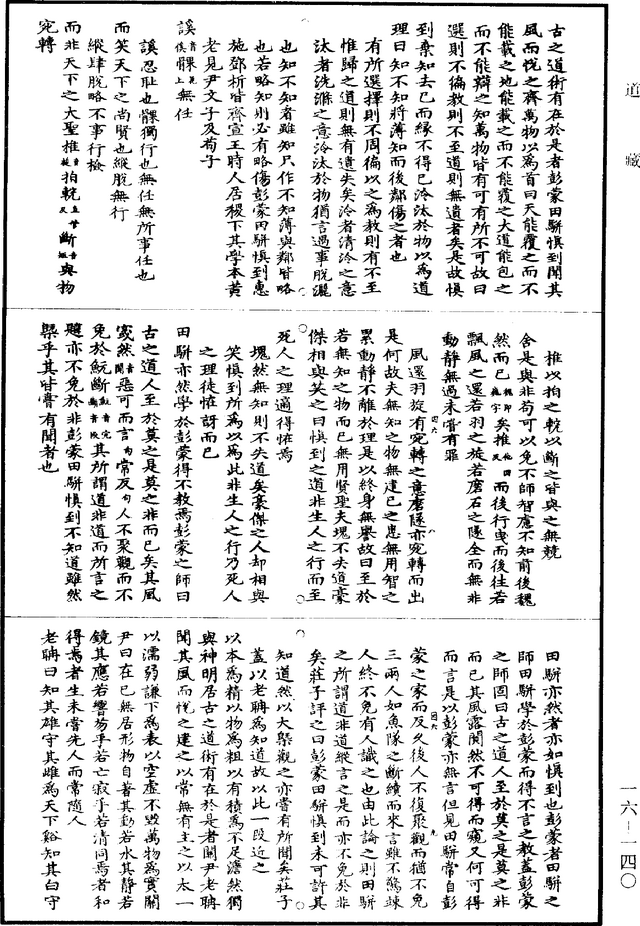 道藏
古之道術有在於是者彭蒙田駢慎到聞其
風而悅之齊萬物以為首曰天能覆之而不
能載之地能載之而不能覆之大道能包之
而不能辯之知萬物皆有可有所不可故曰
選則不徧教則不至道則無遺者矣是故慎
到棄知去己而緣不得已泠汰於物以為道
理曰知不知將薄知而後鄰傷之者也
有所選擇則不周徧以之為教則有不至
惟歸之道則無有遺失矣泠者清泠之意
汰者洗滌之意泠汰於物猶言過事脫灑
也知不知者雖知只作不知薄與鄰皆略
也若略知則必有略傷彭蒙田駢慎到惠
施鄧析皆齊宣王時人居稷下其學本黃
老見尹文子及荀子
謑髁無任
謑忍恥也髁獨行也無任無所事任也
而笑天下之尚賢也縱脫無行
縱肆脫略不事行檢
而非天下之大聖推拍輐斷與物
宛轉
推以拍之輐以斷之皆與之無競
舍是與非苟可以免不師智慮不知前後魏
然而已矣推而後行曳而後往若
飄風之還若羽之旋若磨石之隧全而無非
動靜無過未嘗有罪
風還羽旋有宛轉之意磨隧亦宛轉而出
是何故夫無知之物無建己之患無用智之
累動靜不離於理是以終身無譽故曰至於
若無知之物而已無用賢聖夫塊不失道豪
傑相與笑之曰慎到之道非生人之行而至
死人之理適得怪焉
塊然無知則不失道矣豪傑之人却相與
笑慎到所為以為此非生人之行乃死人
之理徒怪訝而已
田駢亦然學於彭蒙得不教焉彭蒙之師曰
古之道人至於莫之是莫之非而已矣其風
窢然惡可而言常反人不聚觀而不
免於魭斷其所謂道非道而所言之
韙亦不免於非彭蒙田駢慎到不知道雖然
槩乎其皆嘗有聞者也
田駢亦然者亦如慎到也彭蒙者田駢之
師田駢學於彭蒙而得不言之教蓋彭蒙
之師固曰古之道人至於莫之是莫之非
而已其風窢閴然不可得而窺又何可得
而言是以彭蒙亦無言但見田駢常自彭
蒙之家而反久後人不復聚觀而猶不免
三兩人如魚隊之斷續而來言雖不驚竦
人終不免有人識之也由此論之則田駢
之所謂道非道縱言之是而亦不免於非
矣莊子評之曰彭蒙田駢慎到未可許其
知道然以大槩觀之亦嘗有所聞矣莊子
蓋以老聃為知道故以此一段近之
以本為精以物為粗以有積為不足澹然獨
與神明居古之道術有在於是者關尹老聃
聞其風而悅之建之以常無有主之以太一
以濡弱謙下為表以空虛不毀萬物為實關
尹曰在己無居形物自著其動若水其靜若
鏡其應若響芴乎若亡寂乎若清同焉者和
得焉者失未嘗先人而常隨人
老聃曰知其雄守其雌為天下谿知其白守
一六–一四〇